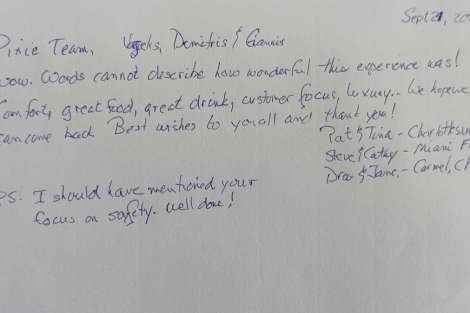 Sept 21, 20
Pixie Team, Vagelis, Demitris & Giannis
wow. Words cannot describe how wonderful this experience was!
Comfort, great food, great drink, customer focus, luxury... We hope we
can come back Best wishes to you all and thank you!
Pat & Tina - Charlottesv
Steve & Cathy - Miami F
Drew & Jane, - Carmel, CA
PS: I should have mentioned your
focus on safety. Well done!